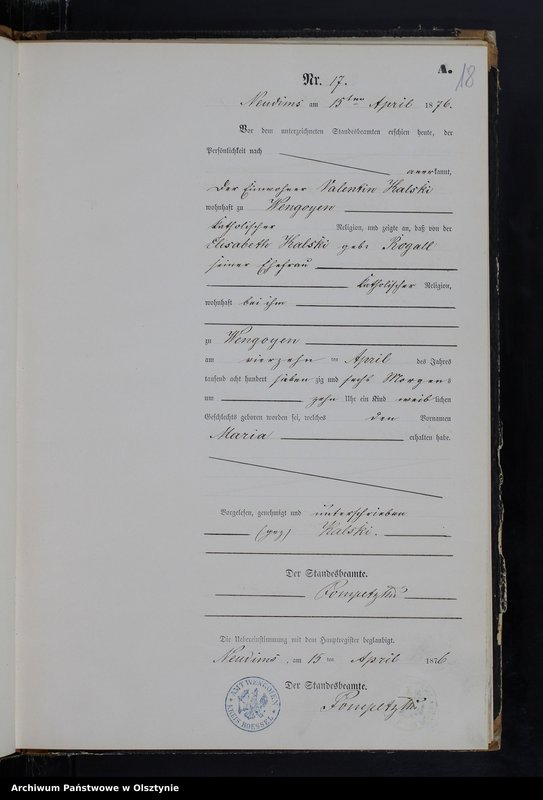 A.
18
Nr. 17.
Neudims am 15ten April 1876.
Vor dem unterzeichneten Standesbeamten erschien heute, der
Persönlichkeit nach
anerkannt,
Der Einwohner Valentin Kalski
wohnhaft zu Wengoyen
katholischer Religion, und zeigte an, daß von der
Elisabeth Kalski geb. Rogall
seiner Ehefrau
katholischer Religion,
wohnhaft bei ihm
zu Wengoyen
am vierzehn ten April des Jahres
tausend acht hundert sieben zig und sechs Morgens
um zehn Uhr ein Kind weiblichen
Geschlechts geboren worden sei, welches den Vornamen
Maria erhalten habe.
Vorgelesen, genehmigt und unterschrieben
(gez) Kalski.
Der Standesbeamte.
Die Uebereinstimmung mit dem Hauptregister beglaubigt.
Neudims, am 15 ten April 1876
Der Standesbeamte.
AMT WENGOYEN
KREIS ROESSEL
Archiwum Państwowe w Olsztynie